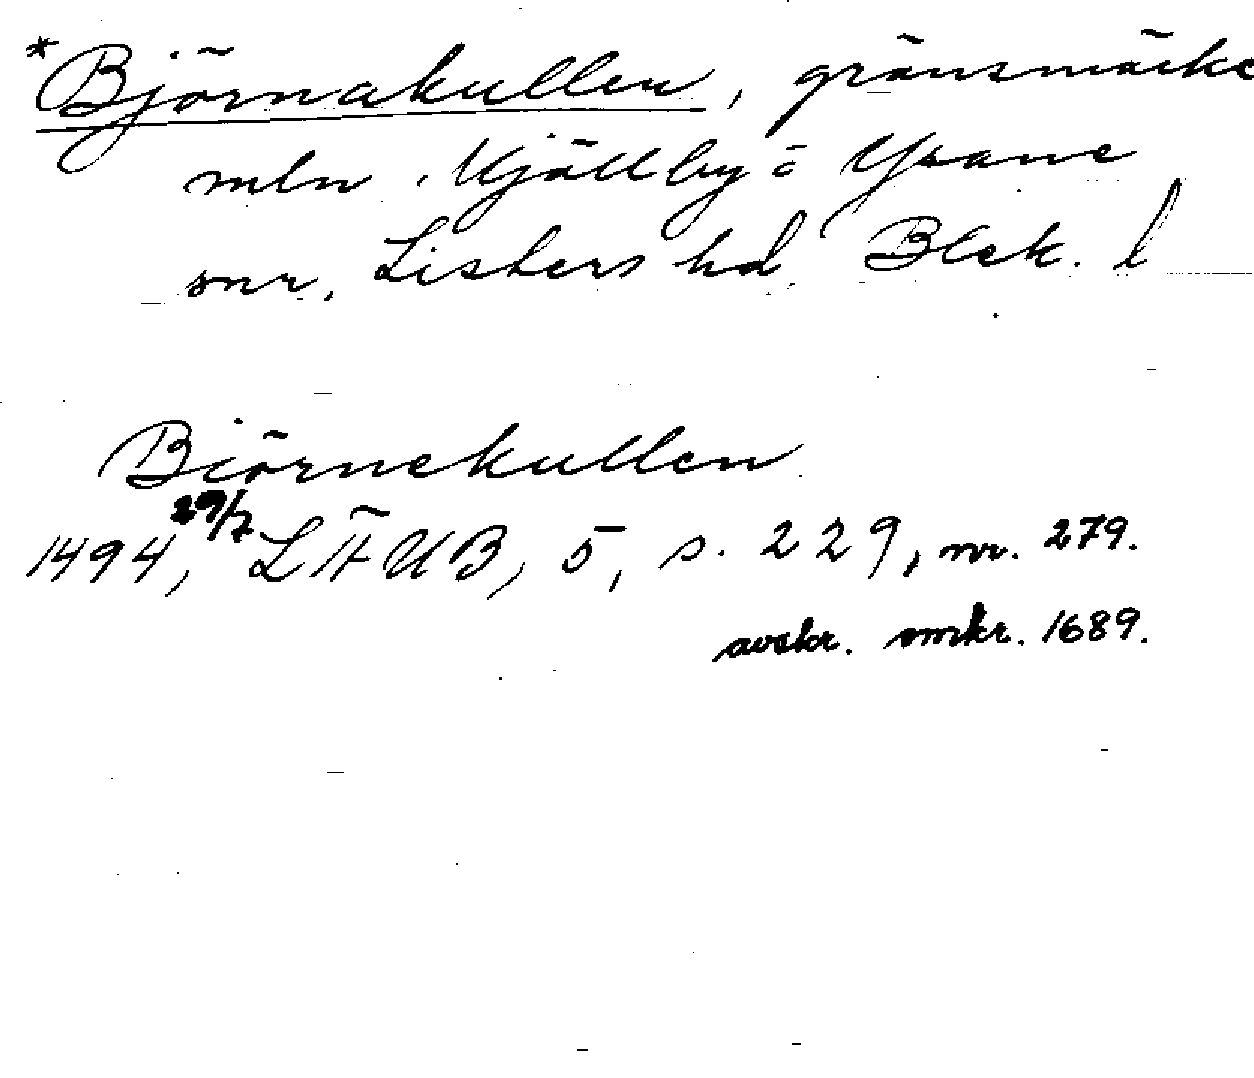 *Björnakullen, gränsmärke
mln Mjällby o Ysane
snr, Listers hd. Blek. l
Biörnekullen
1494, 29/7 LÄUB, 5, s. 229, nr. 279.
avskr. omkr. 1689.